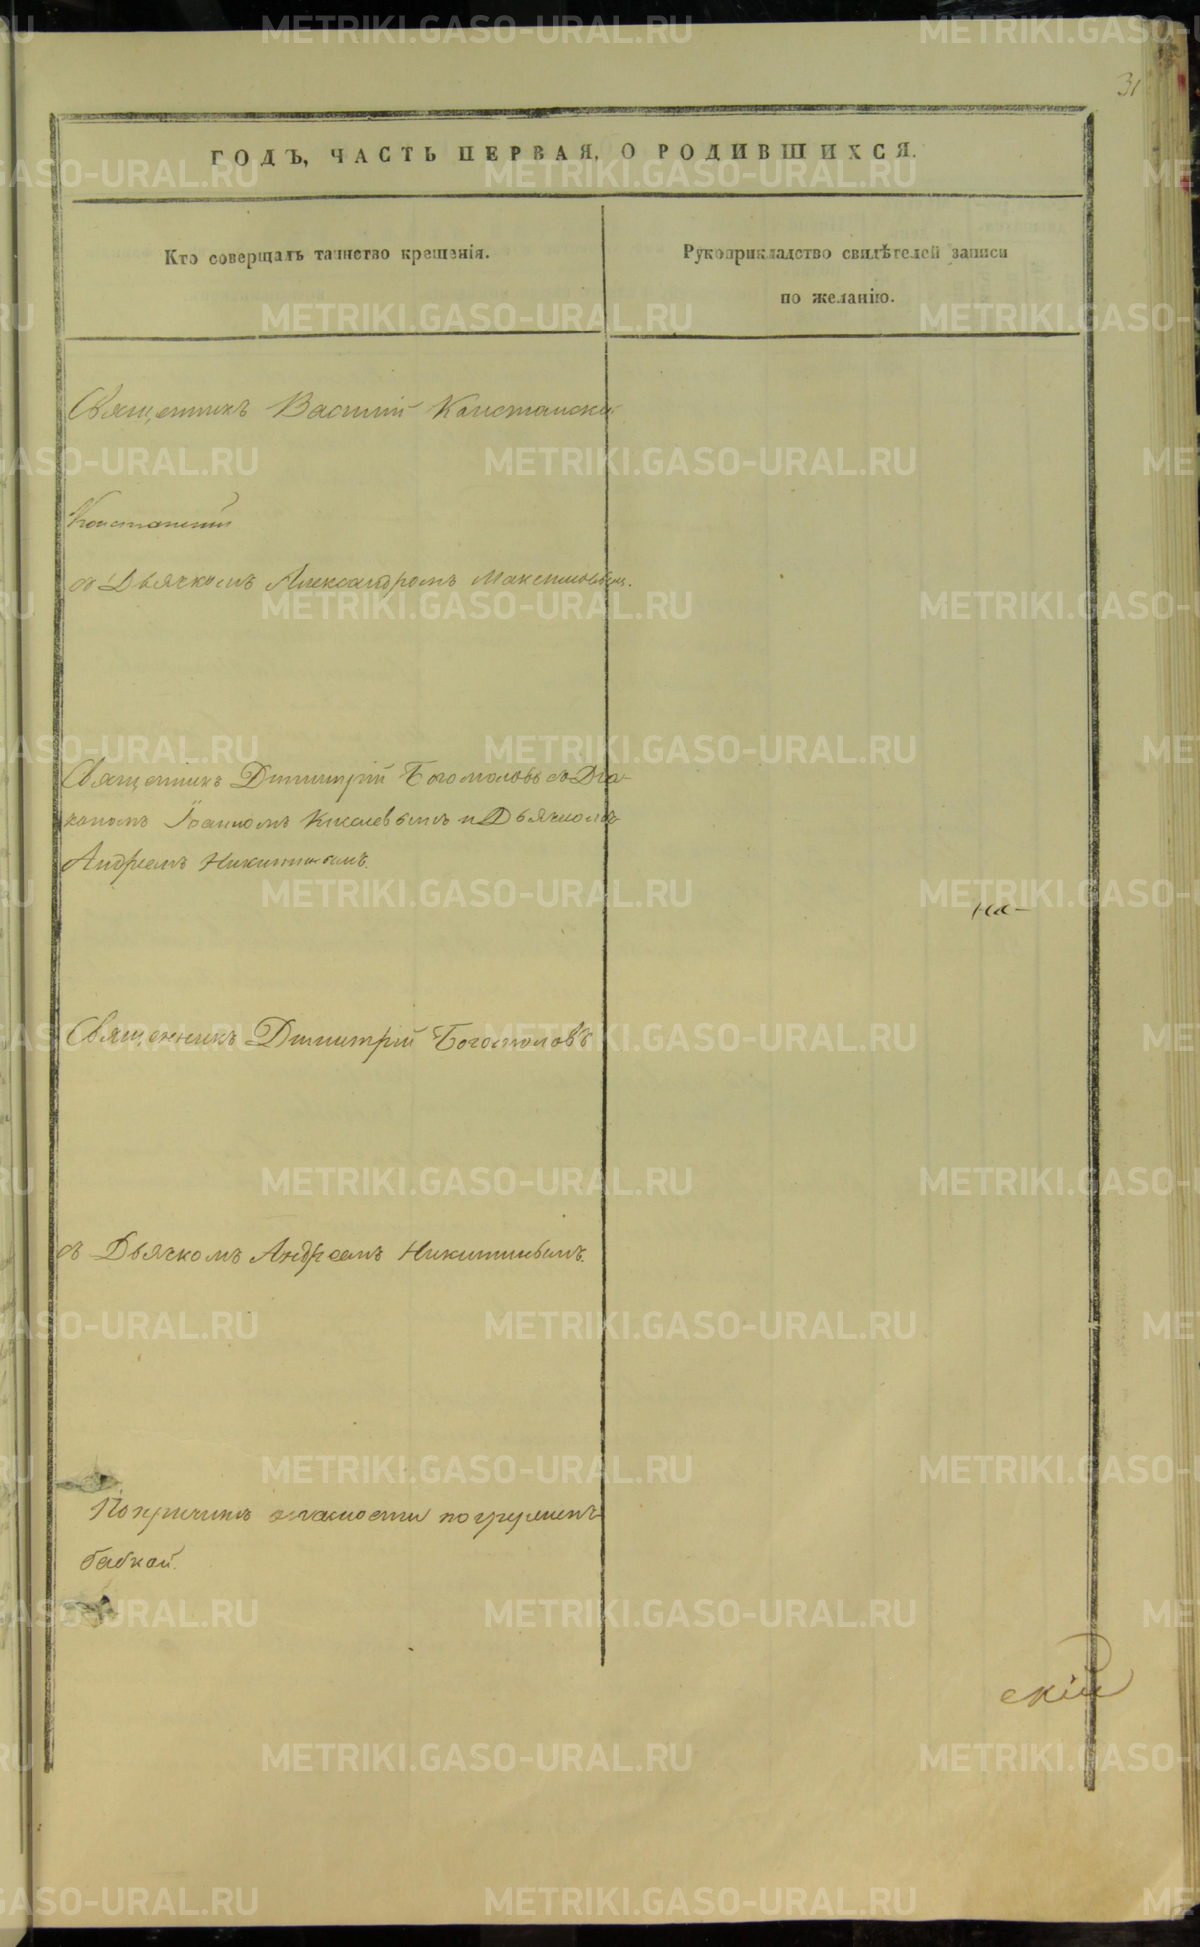 31
ГОДЪ, ЧАСТЬ ПЕРВАЯ, О РОДИВШИХСЯ.
Кто соверщалъ таинство крещенія.
Рукоприкладство свидѣтелей записи
по желанію.
Священникъ Василій
съ Дьячкомъ Александромъ Максимовымъ.
Священникъ Димитрій Богомоловъ съ Діа-
кономъ Іоанномъ Киселевымъ и Дьячкомъ
Андреемъ Никитинымъ.
на-
Священникъ Димитрій Богомоловъ
съ Дьячкомъ Андреемъ Никитинымъ.
По причинѣ опасности погруженъ
бабкой.
скій
METRIKI.GASO-URAL.RU